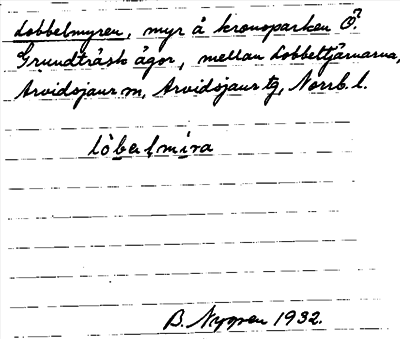 Lobbelmyren, myr å kronoparken Ö.
Grundträsk ägor, mellan Lobbeltjärnarna,
Arvidsjaur sn, Arvidsjaur tg, Norrb. l.
lòbelmira
B. Nygren 1932.